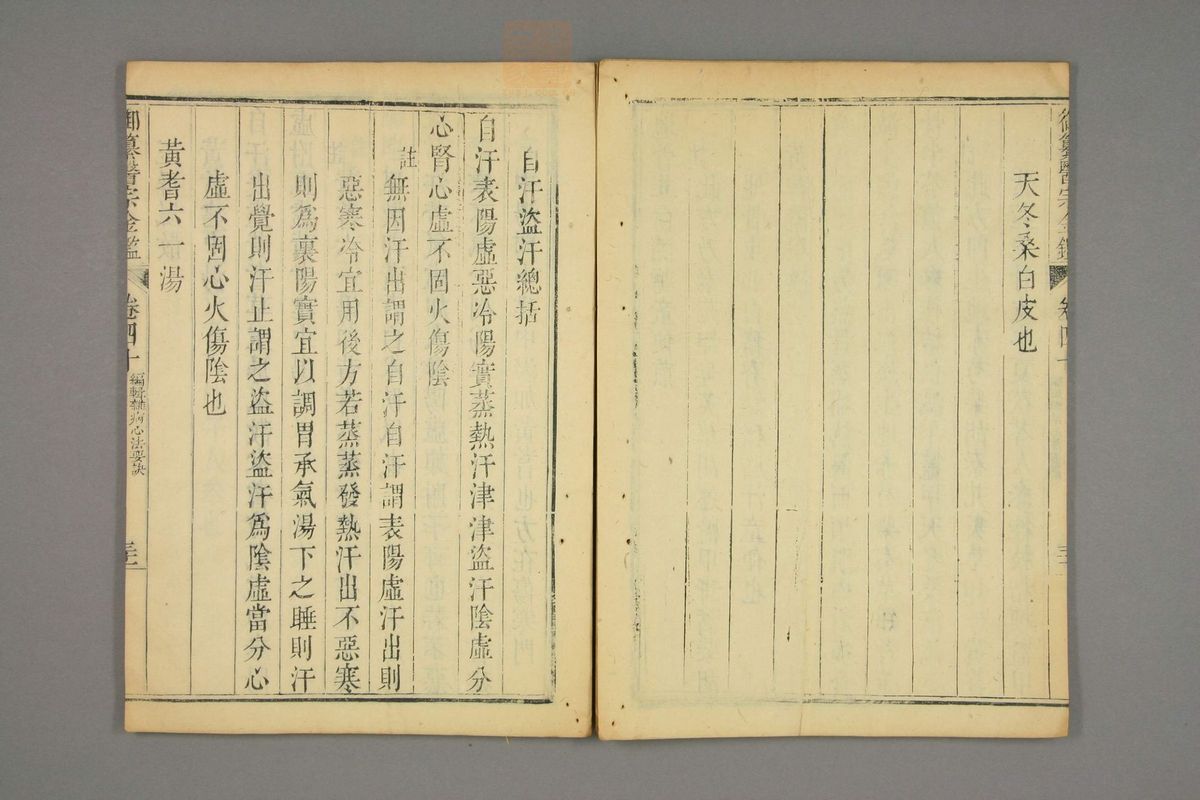 天冬桑白皮也
自汗盜汗總括
自汗表陽虛惡冷陽實蒸熱汗津津盜汗陰虛分
心腎心虛不固火傷陰
註無因汗出謂之自汗自汗謂表陽虛汗出則
惡寒冷宜用後方若蒸蒸發熱汗出不惡寒
則爲裏陽實宜以調胃承氣湯下之睡則汗
出覺則汗止謂之盜汗盜汗爲陰虛當分心
虛不固心火傷陰也
黃耆六一湯
御纂醫宗金鑑
卷四十
編輯雜病心法要訣